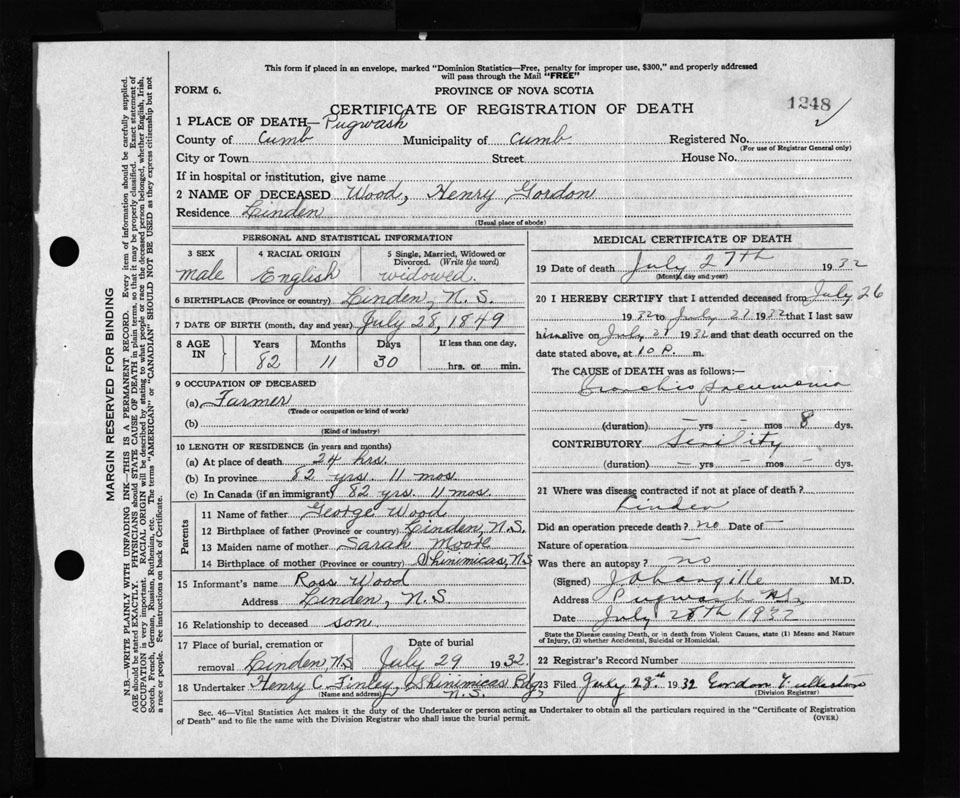 This form if placed in an envelope, marked "Dominion Statistics—Free, penalty for improper use, $300," and properly addressed
will pass through the Mail "FREE"
FORM 6. PROVINCE OF NOVA SCOTIA
CERTIFICATE OF REGISTRATION OF DEATH 1248
1 PLACE OF DEATH— Pugwash
County of Cumb Municipality of Cumb Registered No.
(For use of Registrar General only)
City or Town Street House No.
If in hospital or institution, give name
2 NAME OF DECEASED Wood, Henry Gordon
Residence Linden
(Usual place of abode)
PERSONAL AND STATISTICAL INFORMATION
3 SEX 4 RACIAL ORIGIN 5 Single, Married, Widowed or
Divorced. (Write the word)
male English widowed.
6 BIRTHPLACE (Province or country) Linden, N.S.
7 DATE OF BIRTH (month, day and year) July 28, 1849
8 AGE IN Years Months Days If less than one day,
82 11 30 hrs. or min.
9 OCCUPATION OF DECEASED
(a) Farmer
(Trade or occupation or kind of work)
(b)
(Kind of industry)
10 LENGTH OF RESIDENCE (in years and months)
(a) At place of death 24 hrs.
(b) In province 82 yrs. 11 mos.
(c) In Canada (if an immigrant) 82 yrs. 11 mos.
Parents
11 Name of father George Wood
12 Birthplace of father (Province or country) Linden, N.S.
13 Maiden name of mother Sarah Moore
14 Birthplace of mother (Province or country) Shinimicas, N.S
15 Informant's name Ross Wood
Address Linden, N.S.
16 Relationship to deceased son.
17 Place of burial, cremation or Date of burial
removal Linden, N.S July 29 1932.
18 Undertaker Henry C. Finley, Shinimicas Bdg
(Name and address) N.S.
MEDICAL CERTIFICATE OF DEATH
19 Date of death July 27th 1932
(Month, day and year)
20 I HEREBY CERTIFY that I attended deceased from July 26
1932 to July 27 1932 that I last saw
him alive on July 27 1932 and that death occurred on the
date stated above, at 10 P. m.
The CAUSE of DEATH was as follows:—
Broncho Pneumonia
(duration) – yrs – mos 8 dys.
CONTRIBUTORY Senility
(duration) – yrs. – mos – dys.
21 Where was disease contracted if not at place of death?
Linden
Did an operation precede death? no Date of –
Nature of operation –
Was there an autopsy? no
(Signed) M.D.
Address Pugwash N.S.
Date July 28th 1932
State the Disease causing Death, or in death from Violent Causes, state (1) Means and Nature
of Injury, (2) whether Accidental, Suicidal or Homicidal.
22 Registrar's Record Number
23 Filed July 28th 1932 Gordon
(Division Registrar)
Sec. 46—Vital Statistics Act makes it the duty of the Undertaker or person acting as Undertaker to obtain all the particulars required in the "Certificate of Registration
of Death" and to file the same with the Division Registrar who shall issue the burial permit. (OVER)
MARGIN RESERVED FOR BINDING
N.B.—WRITE PLAINLY WITH UNFADING INK—THIS IS A PERMANENT RECORD. Every item of information should be carefully supplied.
AGE should be stated EXACTLY. PHYSICIANS should STATE CAUSE OF DEATH in plain terms, so that it may be properly classified. Exact statement of
OCCUPATION is very important. RACIAL ORIGIN will be described by stating to what people or race the deceased person belonged, whether English, Irish,
Scotch, French, German, Russian, Ruthenian, etc. The terms "AMERICAN" or "CANADIAN" SHOULD NOT BE USED as they express citizenship but not
a race or people. See instructions on back of Certificate.